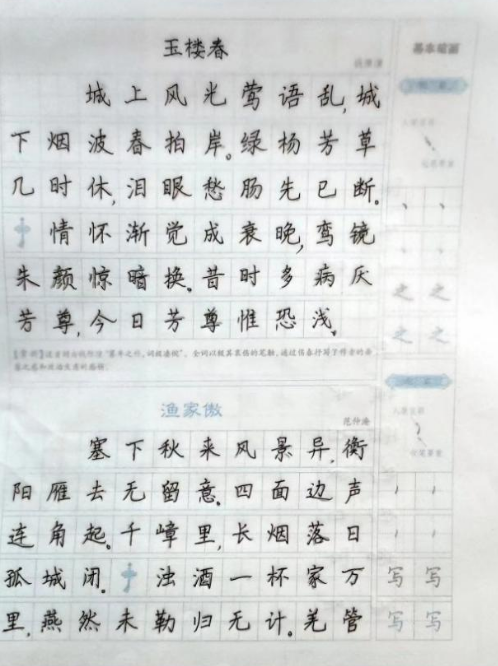 玉楼春
城上风光莺语乱,城
下烟波春拍岸。绿杨芳草
几时休,泪眼愁肠先已断。
情怀渐觉成衰晚,鸾镜
朱颜惊暗换。昔时多病厌
芳尊,今日芳尊惟恐浅。
渔家傲
范仲淹
塞下秋来风景异,衡
阳雁去无留意。四面边声
连角起。千嶂里,长烟落日
孤城闭。浊酒一杯家万
里,燕然未勒归无计。羌管
之 之
之 之
写 写
写 写